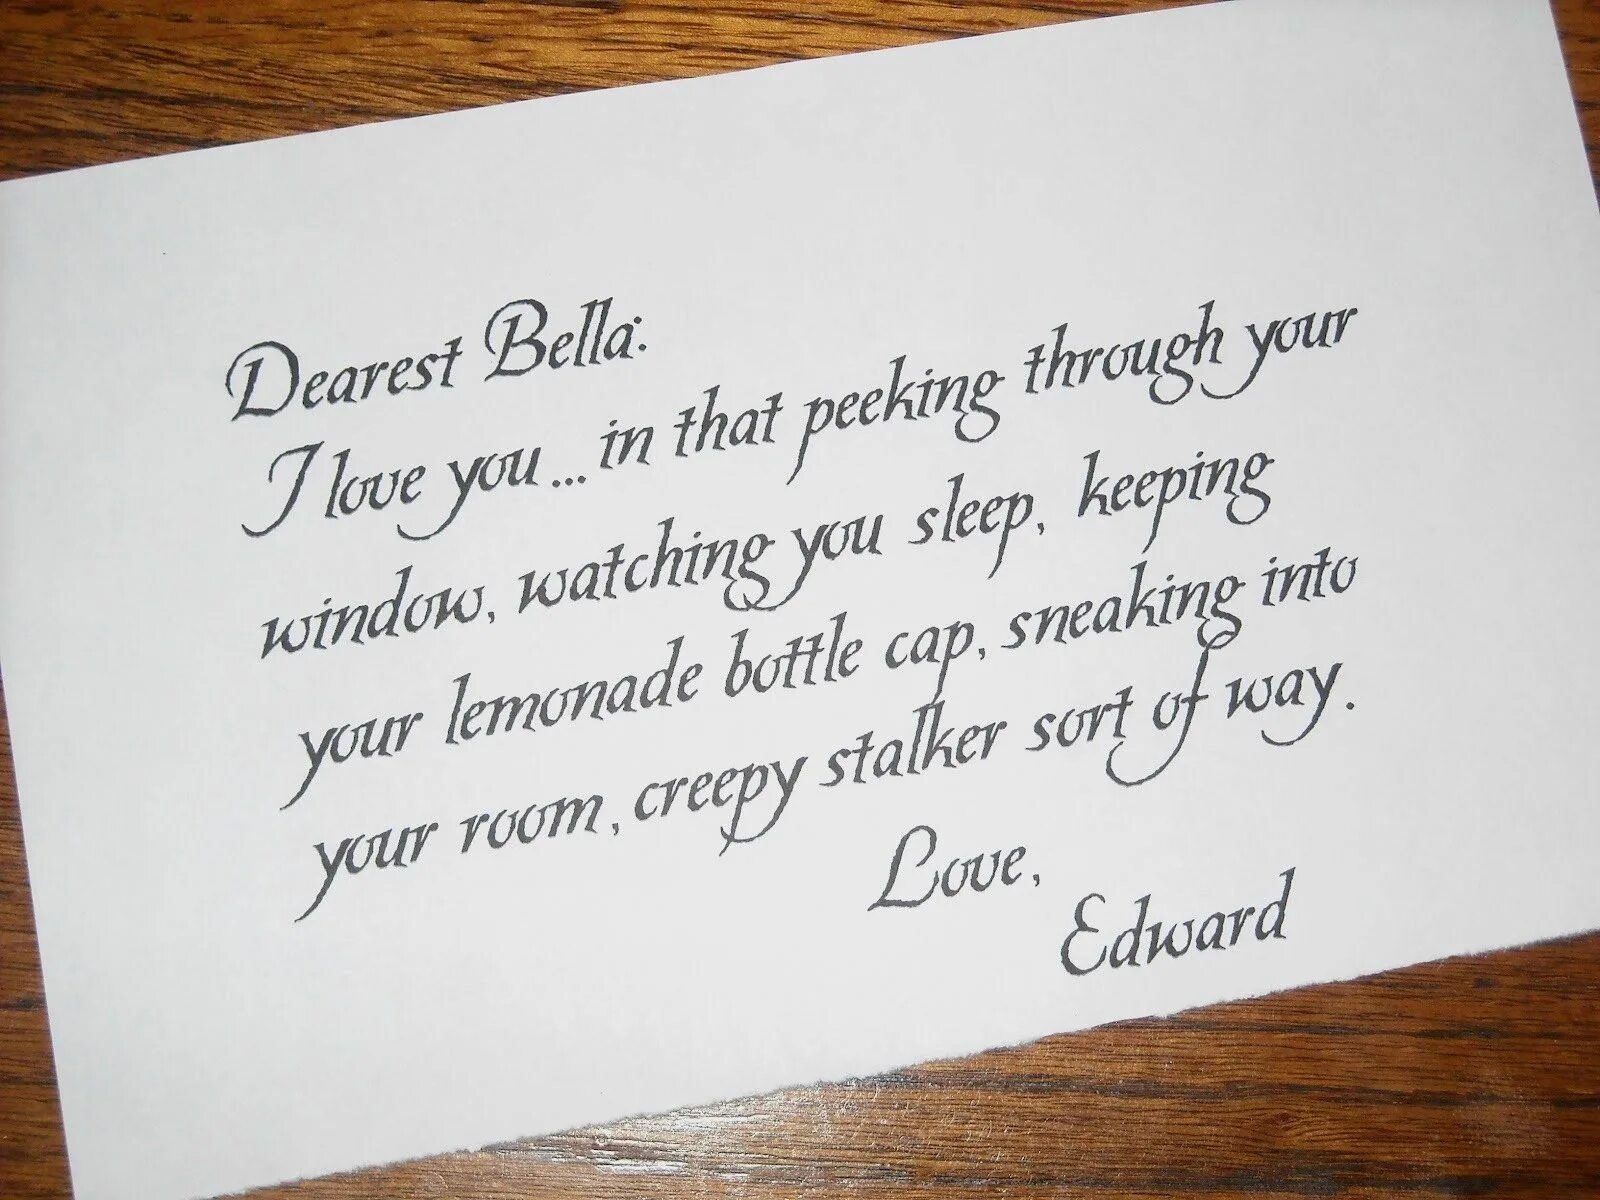 Dearest Bella:
I love you... in that peeking through your
window, watching you sleep, keeping
your lemonade bottle cap, sneaking into
your room, creepy stalker sort of way.
Love,
Edward